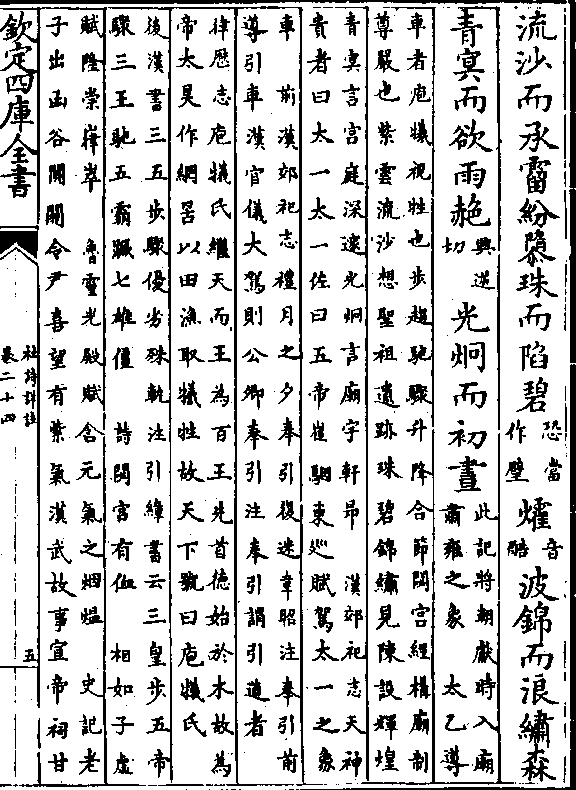 流沙而承霤紛隳珠而陷碧恐當作壁爟音酷波錦而浪繡森
青冥而欲雨赩興逆切光炯而初晝此記將朝獻時入廟肅雍之象 太乙導
車者庖犧視牲也步趨馳驟升降合節閟宮經構廟制
尊嚴也紫雲流沙想聖祖遺跡珠碧錦繡見陳設輝煌
青冥言宮庭深邃光炯言廟宇軒昂 漢郊祀志天神
貴者曰太一太一佐曰五帝崔駰東巡賦駕太一之象
車 前漢郊祀志禮月之夕奉引復迷韋昭注奉引前
導引車漢官儀大駕則公卿奉引注奉引謂引道者
律歷志庖犧氏繼天而王為百王先首德始於木故為
帝太昊作網罟以田漁取犧牲故天下號曰庖犧氏
後漢書三五步驟優劣殊軌注引緯書云三皇步五帝
驟三王馳五霸蹶七雄僵 詩閟宮有侐 相如子虛
賦隆崇嵂崒 魯靈光殿賦含元氣之烟熅 史記老
子出函谷關關令尹喜望有紫氣漢武故事宣帝祠甘
欽定四庫全書
杜詩詳註
卷二十四
五